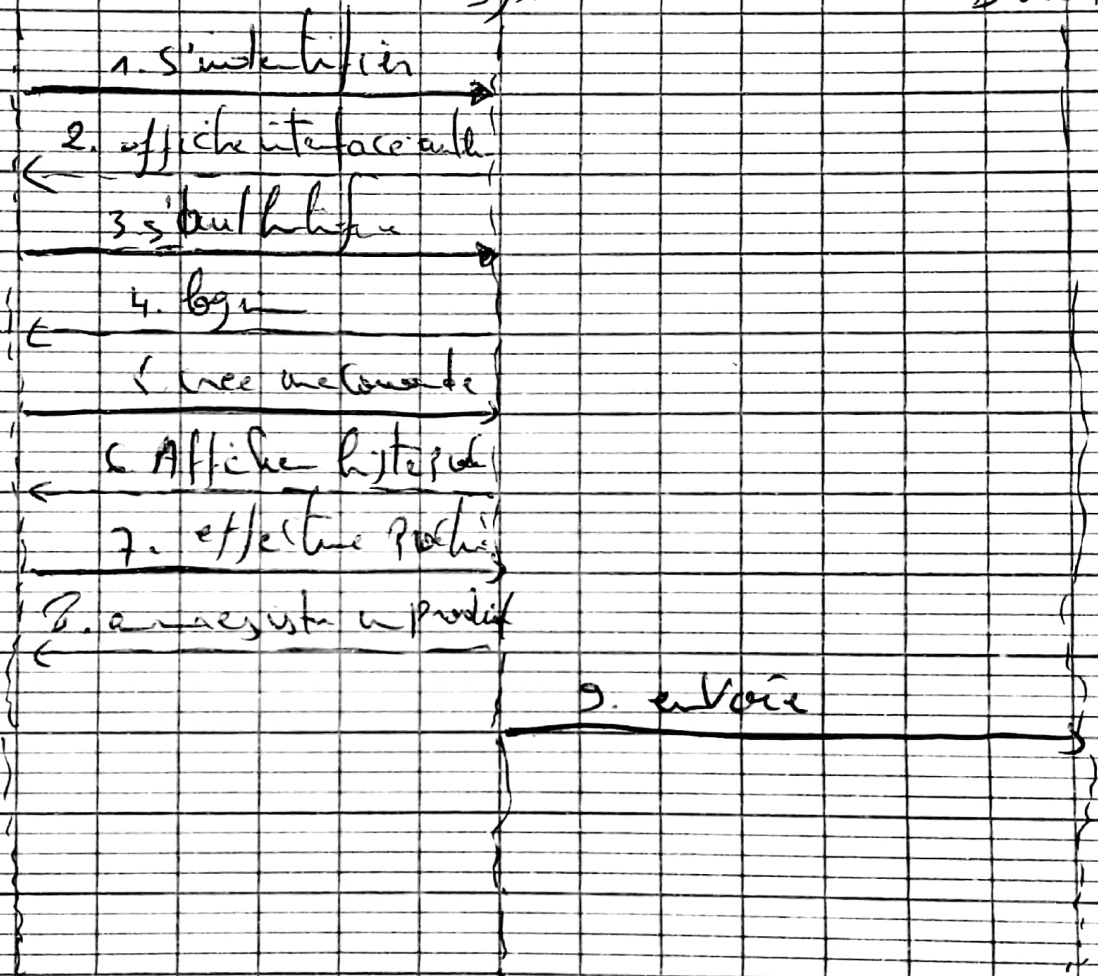 1. s'indentifier
2. affiche interface auth
3. s'authentifie
4. login
5 crée une commande
6 Afficher liste prod
7. effectue
8. enregistre un produit
9. envoie